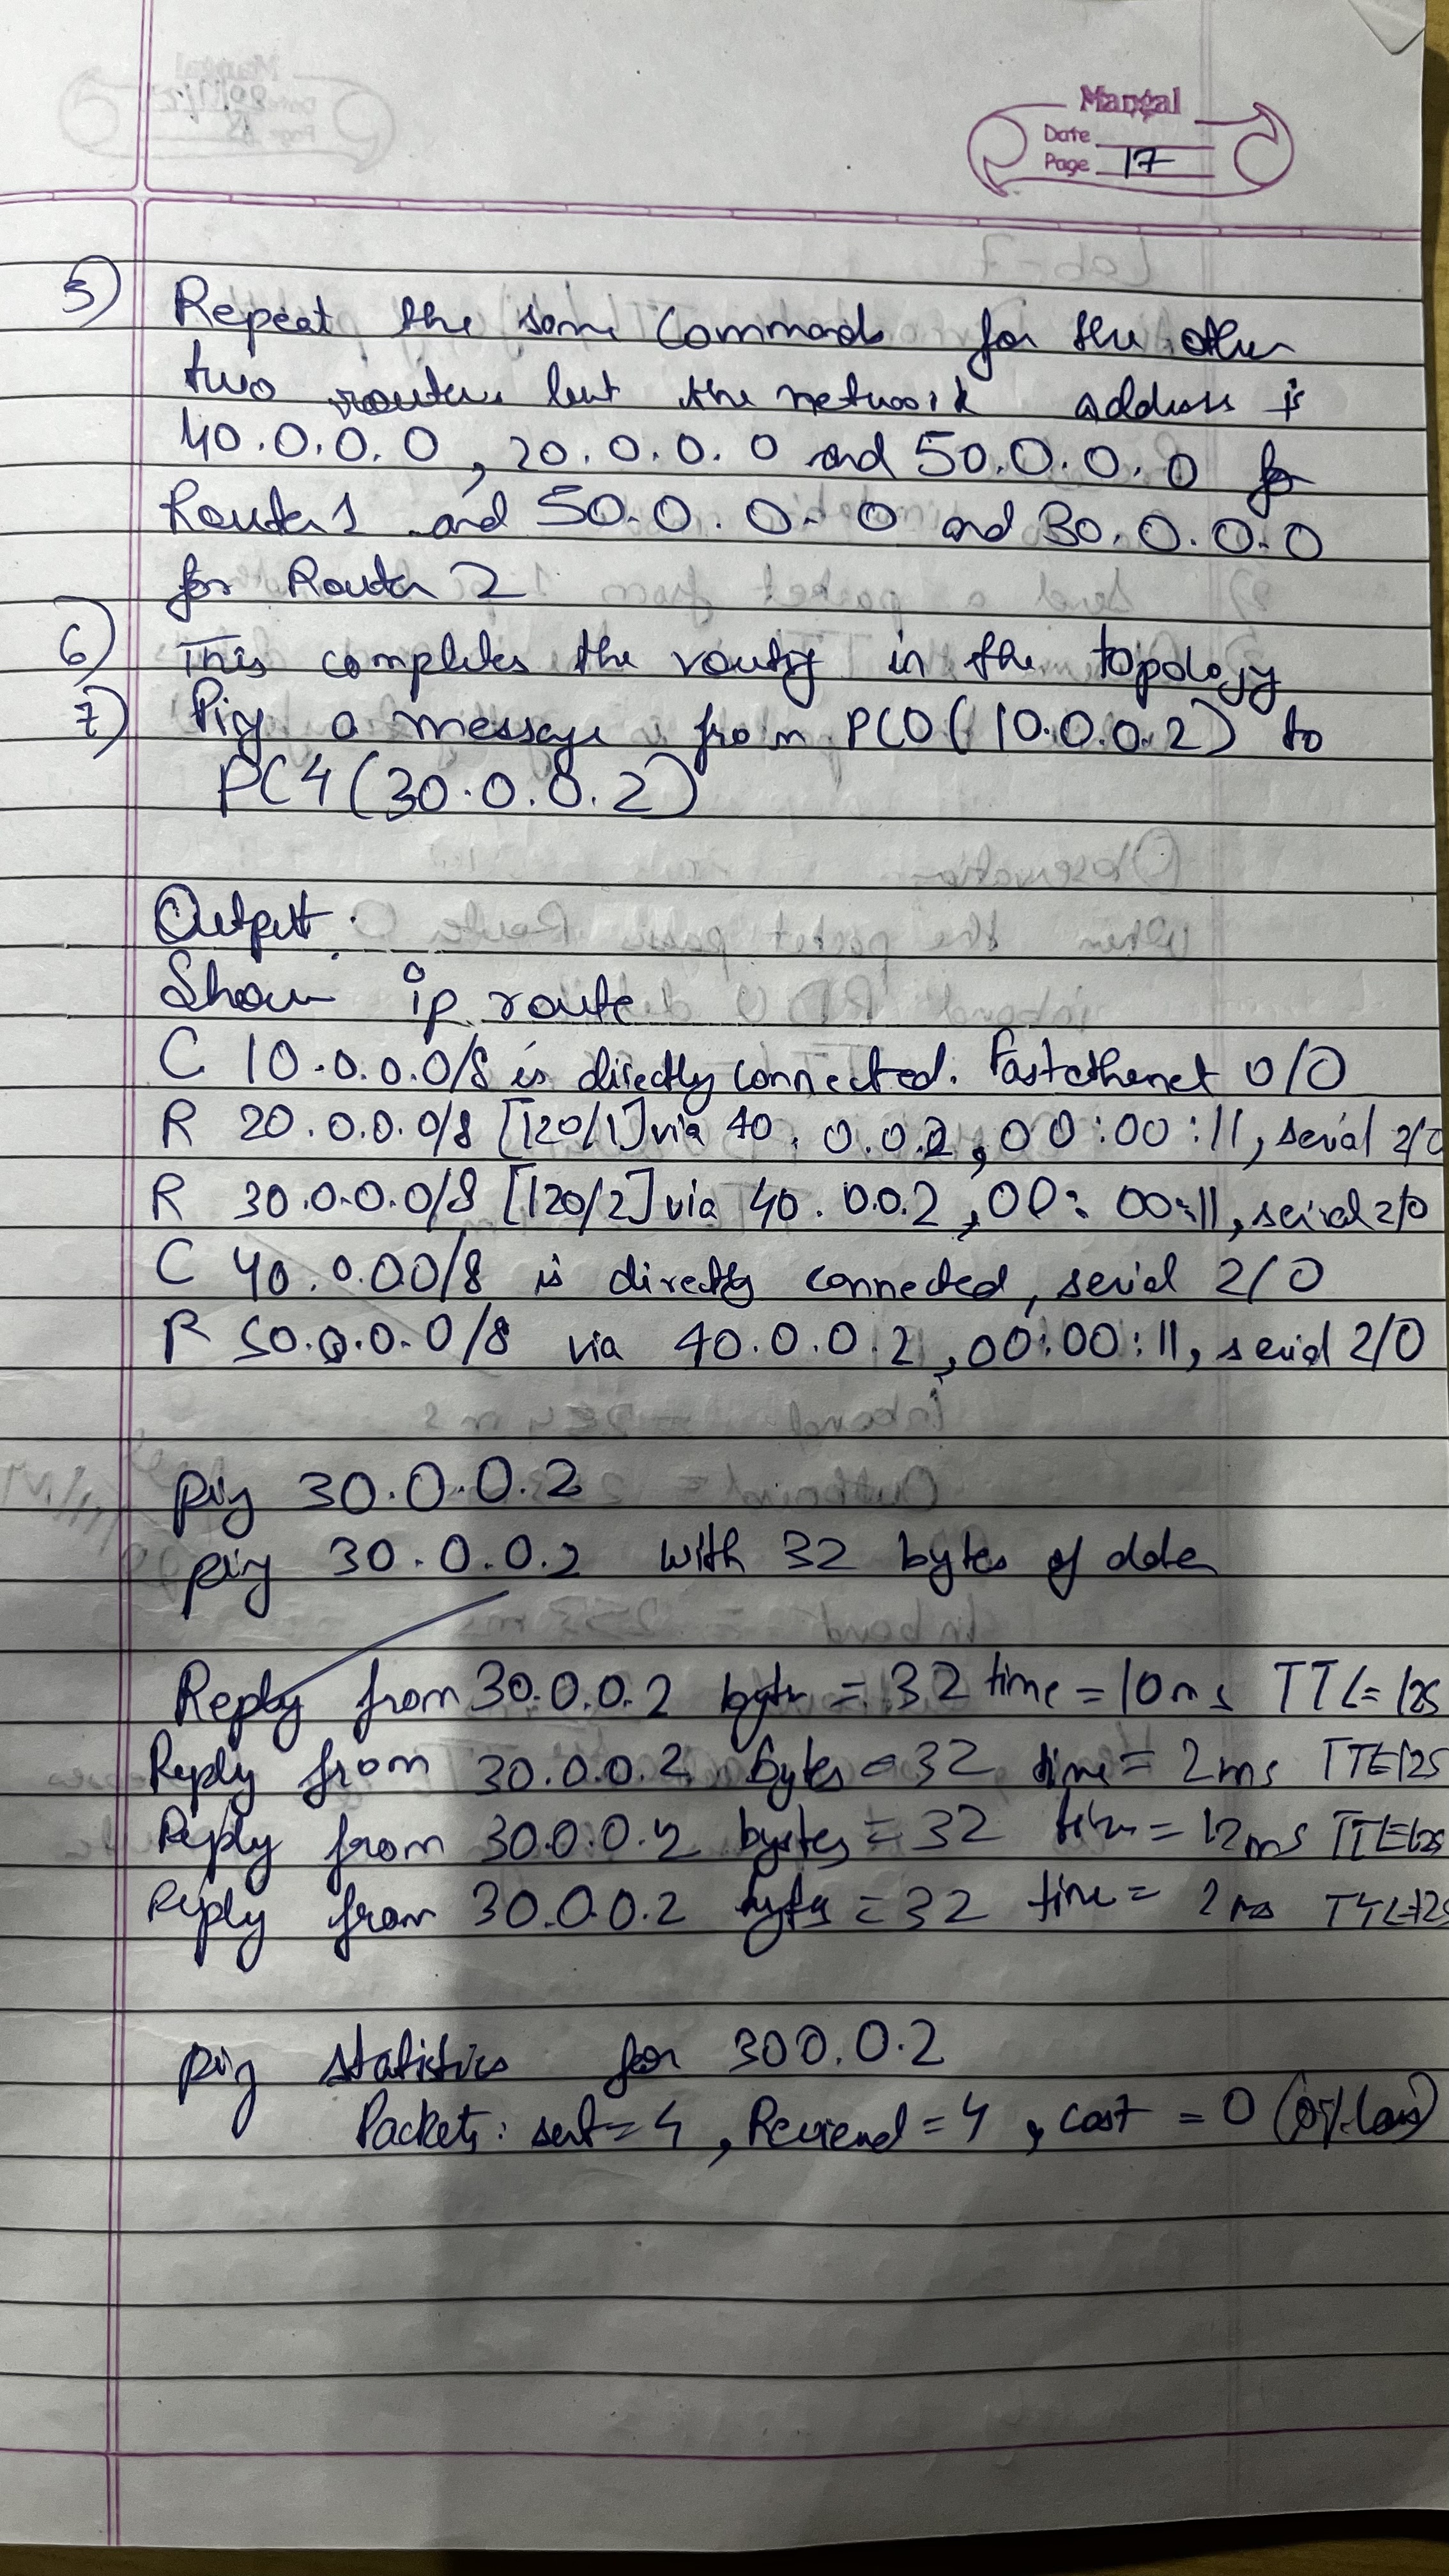 Mangal
Date
Page 17
5) Repeat the same commands for the other
two routers but the network address is
40.0.0.0, 20.0.0.0 and 50.0.0.0 for
Router 1 and 50.0.0.0 and 30.0.0.0
for Router 2
6) This completes the routing in the topology
7) Ping a message from PC0 (10.0.0.2) to
PC4 (30.0.0.2)
Output.
Show ip route
C 10.0.0.0/8 is directly connected. Fastethernet 0/0
R 20.0.0.0/8 [120/1] via 40.0.0.2, 00:00:11, serial 2/0
R 30.0.0.0/8 [120/2] via 40.0.0.2, 00:00:11, serial 2/0
C 40.0.00/8 is directly connected, serial 2/0
R 50.0.0.0/8 via 40.0.0.2, 00:00:11, serial 2/0
ping 30.0.0.2
ping 30.0.0.2 with 32 bytes of data
Reply from 30.0.0.2 byte = 32 time = 10ms TTL = 125
Reply from 30.0.0.2 bytes = 32 time = 2ms TTL=125
Reply from 30.0.0.2 bytes = 32 time = 12ms TTL=125
Reply from 30.0.0.2 bytes = 32 time = 2ms TTL=125
ping statistics for 300.0.2
Packets: sent = 4, Received = 4, Lost = 0 (0% loss)